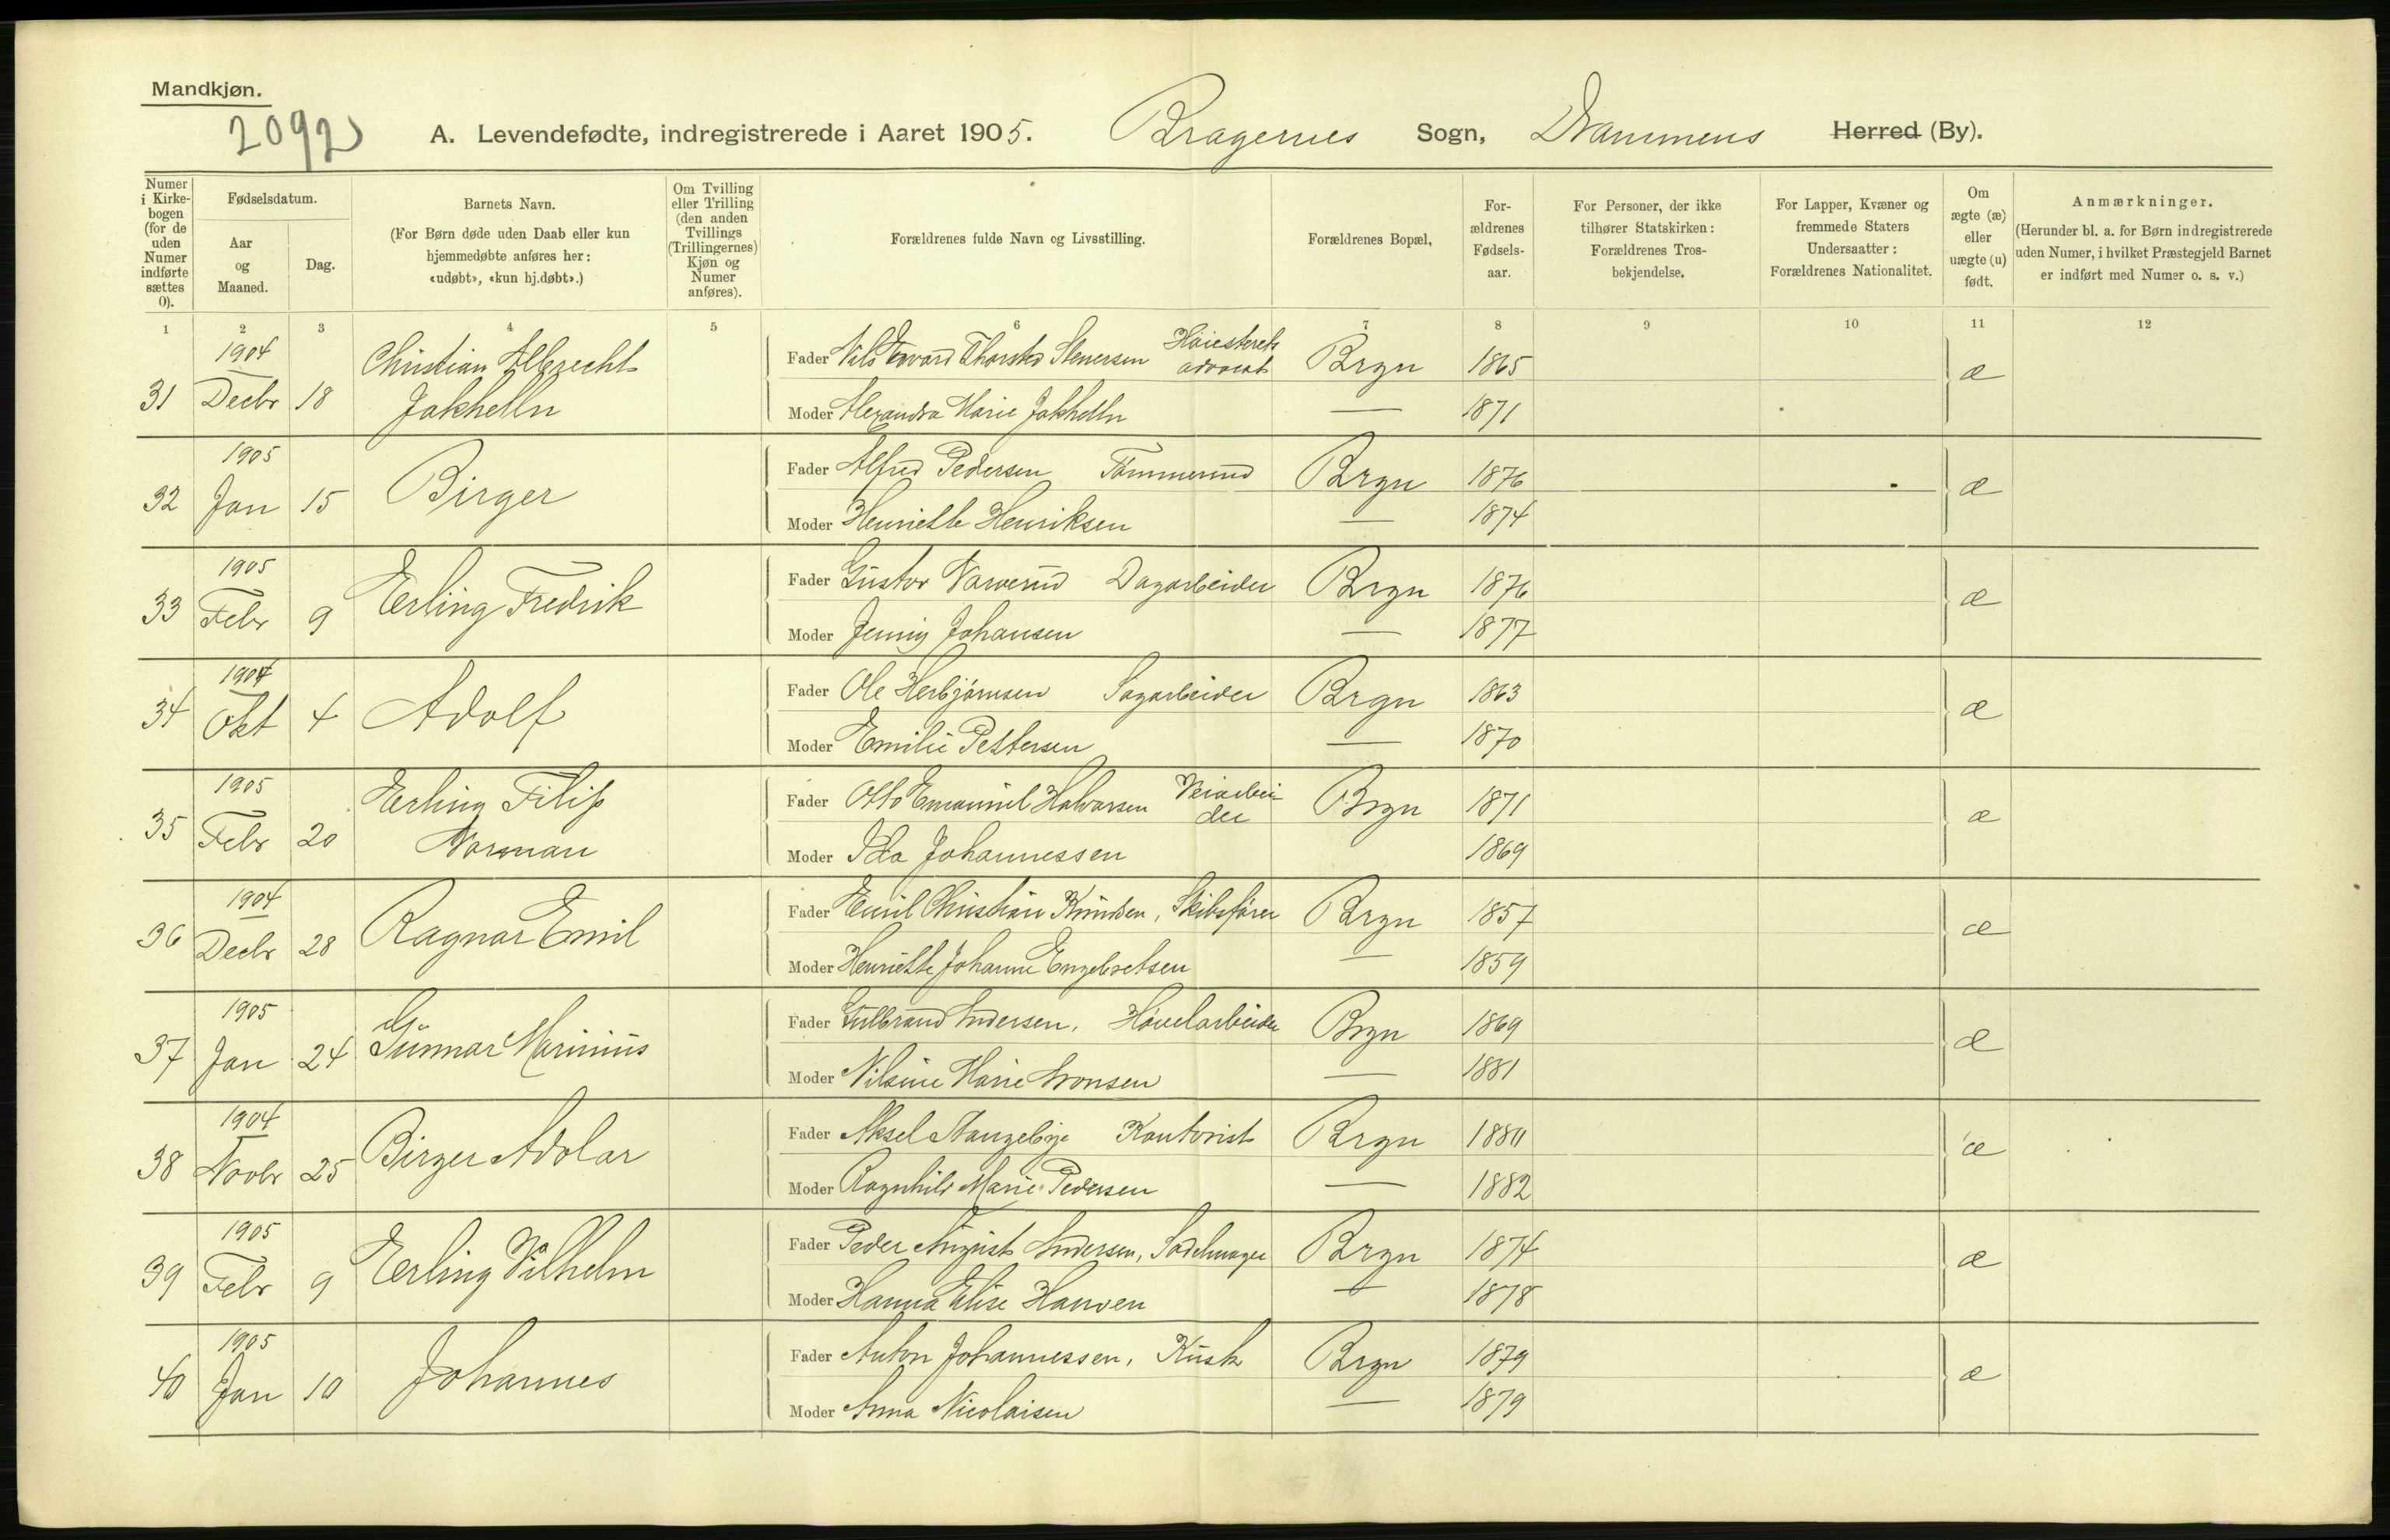 Mandkjøn.
2092
A. Levendefødte, indregistrerede i Aaret 1905. Bragernes Sogn, Drammens Herred (By).
Numer i Kirkebogen (for de uden Numer indførte sættes 0).
Fødselsdatum.
Aar og Maaned.
Dag.
Barnets Navn.
(For Børn døde uden Daab eller kun hjemmedøbte anføres her: «udøbt», «kun hj.døbt».)
Om Tvilling eller Trilling (den anden Tvillings (Trillingernes) Kjøn og Numer anføres).
Forældrenes fulde Navn og Livsstilling.
Forældrenes Bopæl,
Forældrenes Fødselsaar.
For Personer, der ikke tilhører Statskirken: Forældrenes Trosbekjendelse.
For Lapper, Kvæner og fremmede Staters Undersaatter: Forældrenes Nationalitet.
Om ægte (æ) eller uægte (u) født.
Anmærkninger.
(Herunder bl. a. for Børn indregistrerede uden Numer, i hvilket Præstegjeld Barnet er indført med Numer o. s. v.)
1 2 3 4 5 6 7 8 9 10 11 12
31 1904 Decbr 18 Christian Albrecht Jakhelln
Fader Nils Edvard Thorsted Stenersen Høiesterets advocat Brgn 1865 æ
Moder Alexandra Marie Jakhelln — 1871
32 1905 Jan 15 Birger
Fader Alfred Pedersen Tømmermd Brgn 1876 æ
Moder Henriette Henriksen — 1874
33 1905 Febr 9 Erling Fredrik
Fader Gustav Dagarbeider Brgn 1876 æ
Moder Jenny Johansen — 1877
34 1904 Okt 4 Adolf
Fader Ole Herbjørnsen Sagarbeider Brgn 1863 æ
Moder Emilie Pettersen — 1870
35 1905 Febr 20 Erling Filip Norman
Fader Otto Emanuel Halvorsen Veiarbeider Brgn 1871 æ
Moder Ida Johannessen 1869
36 1904 Decbr 28 Ragnar Emil
Fader Emil Christian Knudsen, Skibsfører Brgn 1857 æ
Moder Henriette Johanne Engebretsen — 1859
37 1905 Jan 24 Gunnar Marinius
Fader Gulbrand Andersen, Høvelarbeider Brgn 1869 æ
Moder Nilsine Marie Aronsen — 1881
38 1904 Novbr 25 Birger Adolar
Fader Aksel Stangebye Kontorist Brgn 1880 æ
Moder Ragnhild Marie Pedersen — 1882
39 1905 Febr 9 Erling Vilhelm
Fader Peder August Andersen, Sadelmager Brgn 1874 æ
Moder Hanna Elise Hansen — 1878
40 1905 Jan 10 Johannes
Fader Anton Johannessen, Kusk Brgn 1879 æ
Moder Anna Nicolaisen — 1879